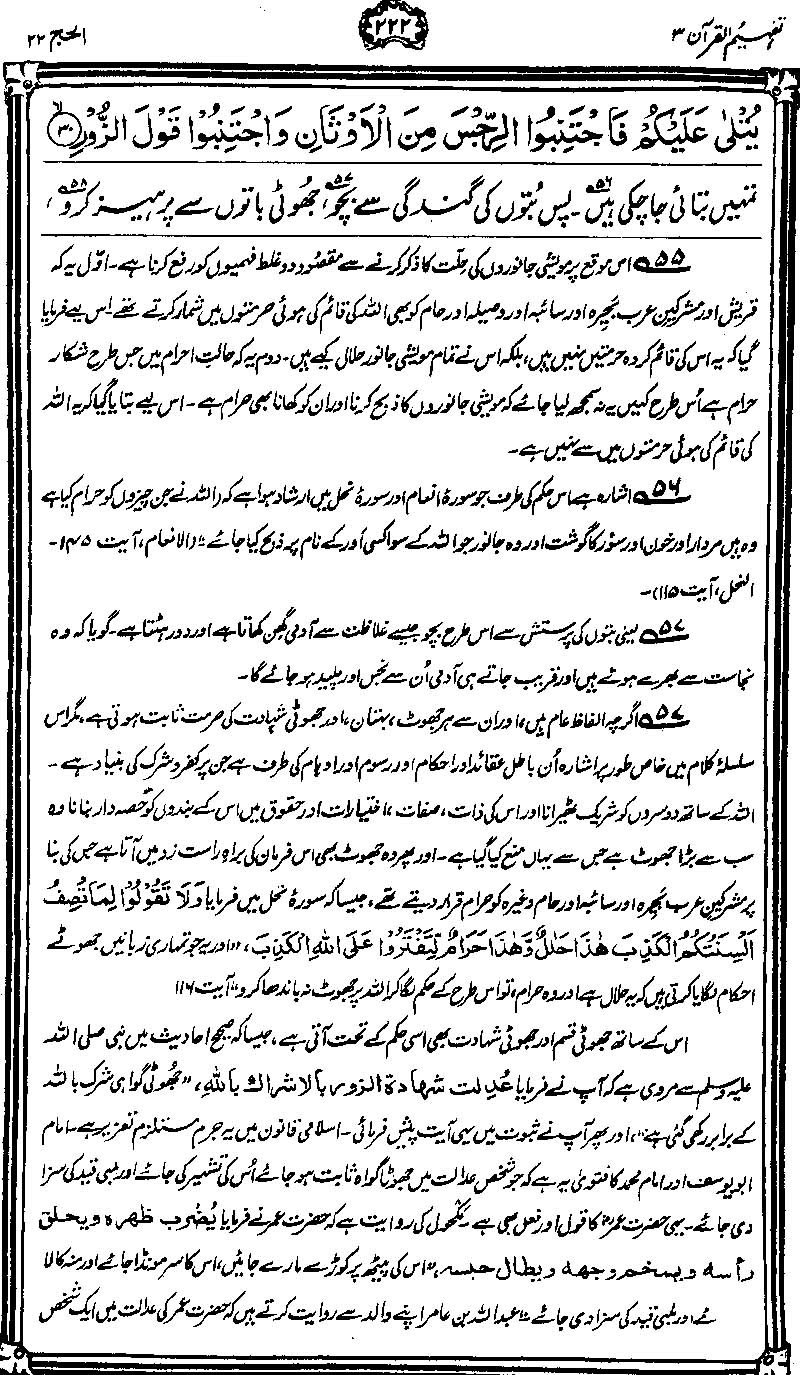 تفہیم القرآن ۳
۲۲۲
الحج ۲۲
يُتْلٰى عَلَيْكُمْ فَاجْتَنِبُوا الرِّجْسَ مِنَ الْاَوْثَانِ وَاجْتَنِبُوْا قَوْلَ الزُّوْرِ ۳۰
تمہیں بتائی جا چکی ہیں۵۶۔ پس بُتوں کی گندگی سے بچو۵۷، جھُوٹی باتوں سے پرہیز کرو۵۸،
۵۵ اس موقع پر مویشی جانوروں کی حِلّت کا ذکر کرنے سے مقصُود دو غلط فہمیوں کو رفع کرنا ہے۔ اوّل یہ کہ
قریش اور مشرکینِ عرب بَحِیرہ اور سائبہ اور وصیلہ اور حام کو بھی اللہ کی قائم کی ہوئی حرمتوں میں شمار کرتے تھے۔ اس لیے فرمایا
گیا کہ یہ اس کی قائم کردہ حرمتیں نہیں ہیں، بلکہ اس نے تمام مویشی جانور حلال کیے ہیں۔ دوم یہ کہ حالتِ احرام میں جس طرح شکار
حرام ہے اُس طرح کہیں یہ نہ سمجھ لیا جائے کہ مویشی جانوروں کا ذبح کرنا اور ان کو کھانا بھی حرام ہے۔ اس لیے بتایا گیا کہ یہ اللہ
کی قائم کی ہوئی حرمتوں میں سے نہیں ہے۔
۵۶ اشارہ ہے اس حکم کی طرف جو سورۂ انعام اور سورۂ نحل میں ارشاد ہوا ہے کہ (اللہ نے جن چیزوں کو حرام کیا ہے
وہ ہیں مردار اور خون اور سؤر کا گوشت اور وہ جانور جو اللہ کے سوا کسی اَور کے نام پر ذبح کیا جائے" (الانعام، آیت ۱۴۵۔
النحل، آیت ۱۱۵)۔
۵۷ یعنی بتوں کی پرستش سے اس طرح بچو جیسے غلاظت سے آدمی گھن کھاتا ہے اور دور ہٹتا ہے۔ گویا کہ وہ
نجاست سے بھرے ہوئے ہیں اور قریب جاتے ہی آدمی اُن سے نجس اور پلید ہو جائے گا۔
۵۷ اگرچہ الفاظ عام ہیں، اور ان سے ہر جھوٹ، بہتان، اور جھوٹی شہادت کی حرمت ثابت ہوتی ہے، مگر اس
سلسلۂ کلام میں خاص طور پر اشارہ اُن باطل عقائد اور احکام اور رسوم اور اوہام کی طرف ہے جن پر کفر و شرک کی بنیاد ہے۔
اللہ کے ساتھ دوسروں کو شریک ٹھیرانا اور اس کی ذات، صفات، اختیارات اور حقوق میں اس کے بندوں کو حصہ دار بنانا وہ
سب سے بڑا جھوٹ ہے جس سے یہاں منع کیا گیا ہے۔ اور پھر وہ جھوٹ بھی اس فرمان کی براہِ راست زد میں آتا ہے جس کی بنا
پر مشرکینِ عرب بَحِیرہ اور سائبہ اور حام وغیرہ کو حرام قرار دیتے تھے، جیسا کہ سورۂ نحل میں فرمایا وَلَا تَقُوْلُوْا لِمَا تَصِفُ
اَلْسِنَتُكُمُ الْكَذِبَ هٰذَا حَلٰلٌ وَّهٰذَا حَرَامٌ لِّتَفْتَرُوْا عَلَى اللهِ الْكَذِبَ، "اور یہ جو تمہاری زبانیں جھوٹے
احکام لگایا کرتی ہیں کہ یہ حلال ہے اور وہ حرام، تو اس طرح کے حکم لگا کر اللہ پر جھوٹ نہ باندھا کرو" آیت ۱۱۶
اس کے ساتھ جھوٹی قسم اور جھوٹی شہادت بھی اسی حکم کے تحت آتی ہے، جیسا کہ صحیح احادیث میں نبی صلی اللہ
علیہ وسلم سے مروی ہے کہ آپ نے فرمایا عُدِلت شهادة الزور بالاشراك باللهِ، "جھُوٹی گواہی شرک باللہ
کے برابر رکھی گئی ہے"، اور پھر آپ نے ثبوت میں یہی آیت پیش فرمائی۔ اسلامی قانون میں یہ جرم مستلزمِ تعزیر ہے۔ امام
ابو یوسف اور امام محمد کا فتویٰ یہ ہے کہ جو شخص عدالت میں جھوٹا گواہ ثابت ہو جائے اُس کی تشہیر کی جائے اور لمبی قید کی سزا
دی جائے۔ یہی حضرت عمرؓ کا قول اور فعل بھی ہے۔ مکحول کی روایت ہے کہ حضرت عمر نے فرمایا يُضْرب ظهره ويحلق
رأسه ويسخم وجهه ويطال حبسه، "اس کی پیٹھ پر کوڑے مارے جائیں، اس کا سر مونڈا جائے اور منہ کالا
جائے اور لمبی قید کی سزا دی جائے"۔ عبد اللہ بن عامر اپنے والد سے روایت کرتے ہیں کہ حضرت عمر کی عدالت میں ایک شخص